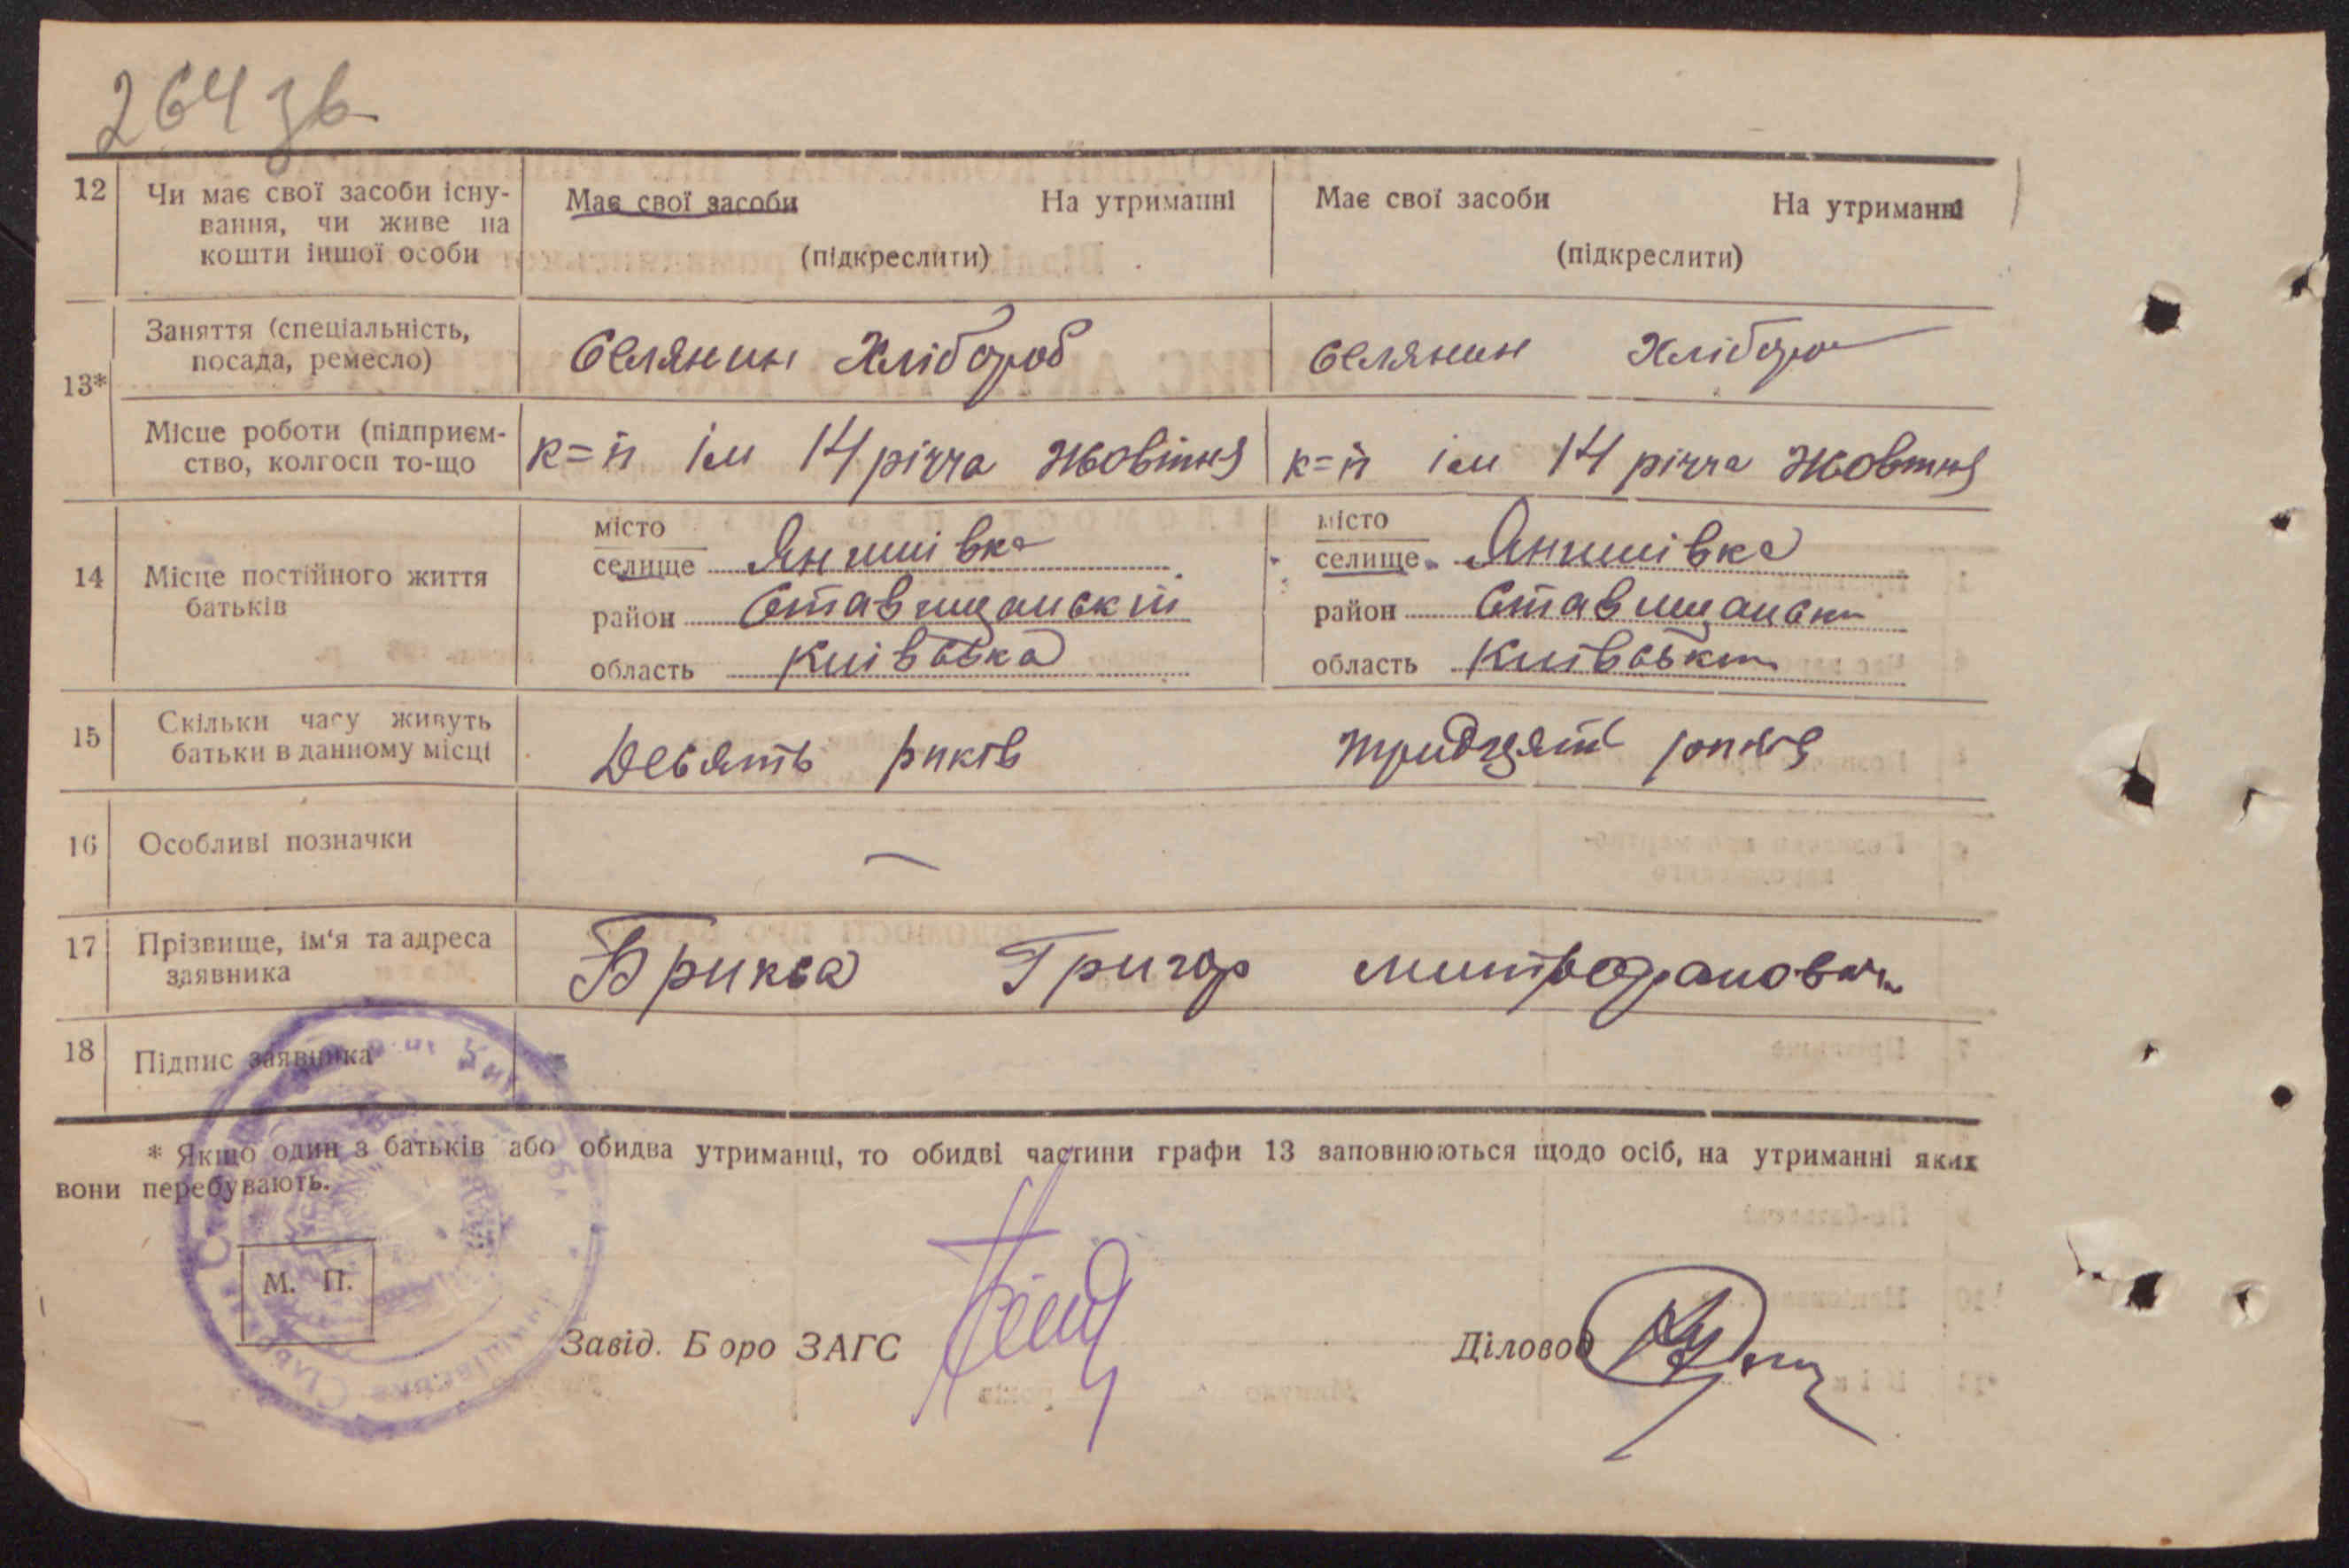 264 зв
12 Чи має свої засоби існу- Має свої засоби На утриманні Має свої засоби На утриманні
вання, чи живе на
кошти іншої особи (підкреслити) (підкреслити)
Заняття (спеціальність, Селянин Хлібороб Селянин Хлібороб
посада, ремесло)
13*
Місце роботи (підприєм- к=п ім 14 річчя Жовтня к=п ім 14 річчя Жовтня
ство, колгосп то-що
місто місто
14 Місце постійного життя селище Янишівка селище Янишівка
батьків район Ставищанский район Ставищански
область Київська область Київська
15 Скільки часу живуть Девять риків тридцять
батьки в данному місці
16 Особливі позначки —
17 Прізвище, ім'я та адреса Брикса Григор митрофанович
заявника
18 Підпис заявника
* Якщо один з батьків або обидва утриманці, то обидві частини графи 13 заповнюються щодо осіб, на утриманні яких
вони перебувають.
М. П.
Завід. Бюро ЗАГС Діловод